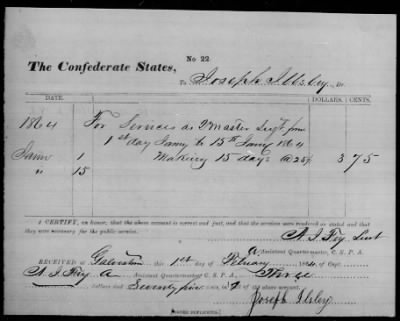 No 22
The Confederate States,
To Joseph Ilsley, Dr.
DATE. DOLLARS. CENTS.
1864 For Services as 2 master Sergt from
1st day Jany to 15th Jany 1864
Jany 1 Making 15 days @ 25¢ 3 75
" 15
I CERTIFY, on honor, that the above account is correct and just, and that the services were rendered as stated and that
they were necessary for the public service.
Lieut
A Assistant Quartermaster, C. S. P. A.
RECEIVED at Galveston this 1st of February 1864, of Capt.
A Assistant Quartermaster C. S. P. A., Three
dollars and Seventy five cents, of the above account.
Joseph Ilsley
[SIGNED DUPLICATES.]